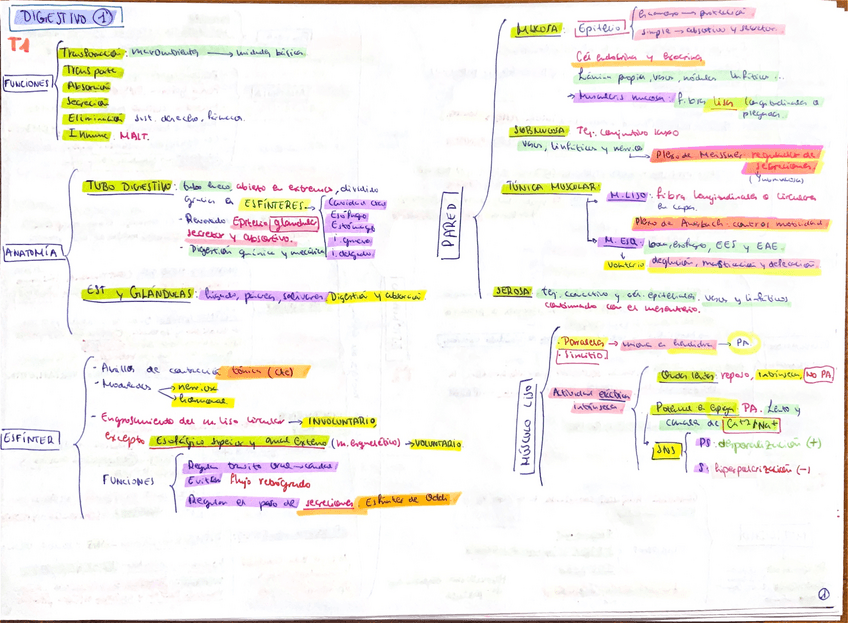 DIGESTIVO 1
T1
FUNCIONES
Transformación: macronutrientes → unidades básicas
Transporte
Absorción
Secreción
Eliminación sust. desecho, fármacos
Inmune MALT.
ANATOMÍA
TUBO DIGESTIVO: tubo hueco, abierto en extremos, dividido
gracias a ESFÍNTERES →
Cavidad oral
Esófago
Estómago
I. grueso
I. delgado
- Revestido Epitelio glandular
secretor y absortivo.
- Digestión química y mecánica
EST y GLÁNDULAS: hígado, páncreas, salivares Digestión y absorción
ESFÍNTER
- Anillos de contracción tónica (cte)
- Modulados → nerviosa
→ hormonal
- Engrosamiento del m. liso circular → INVOLUNTARIO,
excepto Esofágico superior y anal Externo (m. esquelético) → VOLUNTARIO.
FUNCIONES
Regular tránsito
Evitar flujo retrógrado
Regular el paso de secreciones: Esfínter de Oddi
PARED
MUCOSA: Epitelio
→ protección
simple → absortivo y secretor
Cél endocrina y exocrina
Lámina propia, vasos, nódulos linfáticos ...
→ Muscularis mucosa: fibra lisa (longitudinales o
plegadas)
SUBMUCOSA Tej. conjuntivo laxo
vasos, linfáticos y nervios
→ Plexo de Meissner: regulador de
secreciones
(submucoso)
TÚNICA MUSCULAR:
→ M. LISO: fibra longitudinales o circulares
en capas.
Plexo de Auerbach: control motilidad
→ M. ESQ: boca, esófago, EES y EAE.
voluntario deglución, masticación y defecación
SEROSA tej. conectivo y cél. epiteliales, vasos y linfáticos
continuado con el mesenterio.
MÚSCULO LISO
· Parcelas →
→ PA
· Sincitio
Actividad eléctrica
intrínseca
Ondas lentas: reposo, intrínseca, NO PA
Potencial en espiga: PA. Lento y
canales de Ca+2/Na+
SNS
PS: despolarización (+)
S: hiperpolarización (-)
1